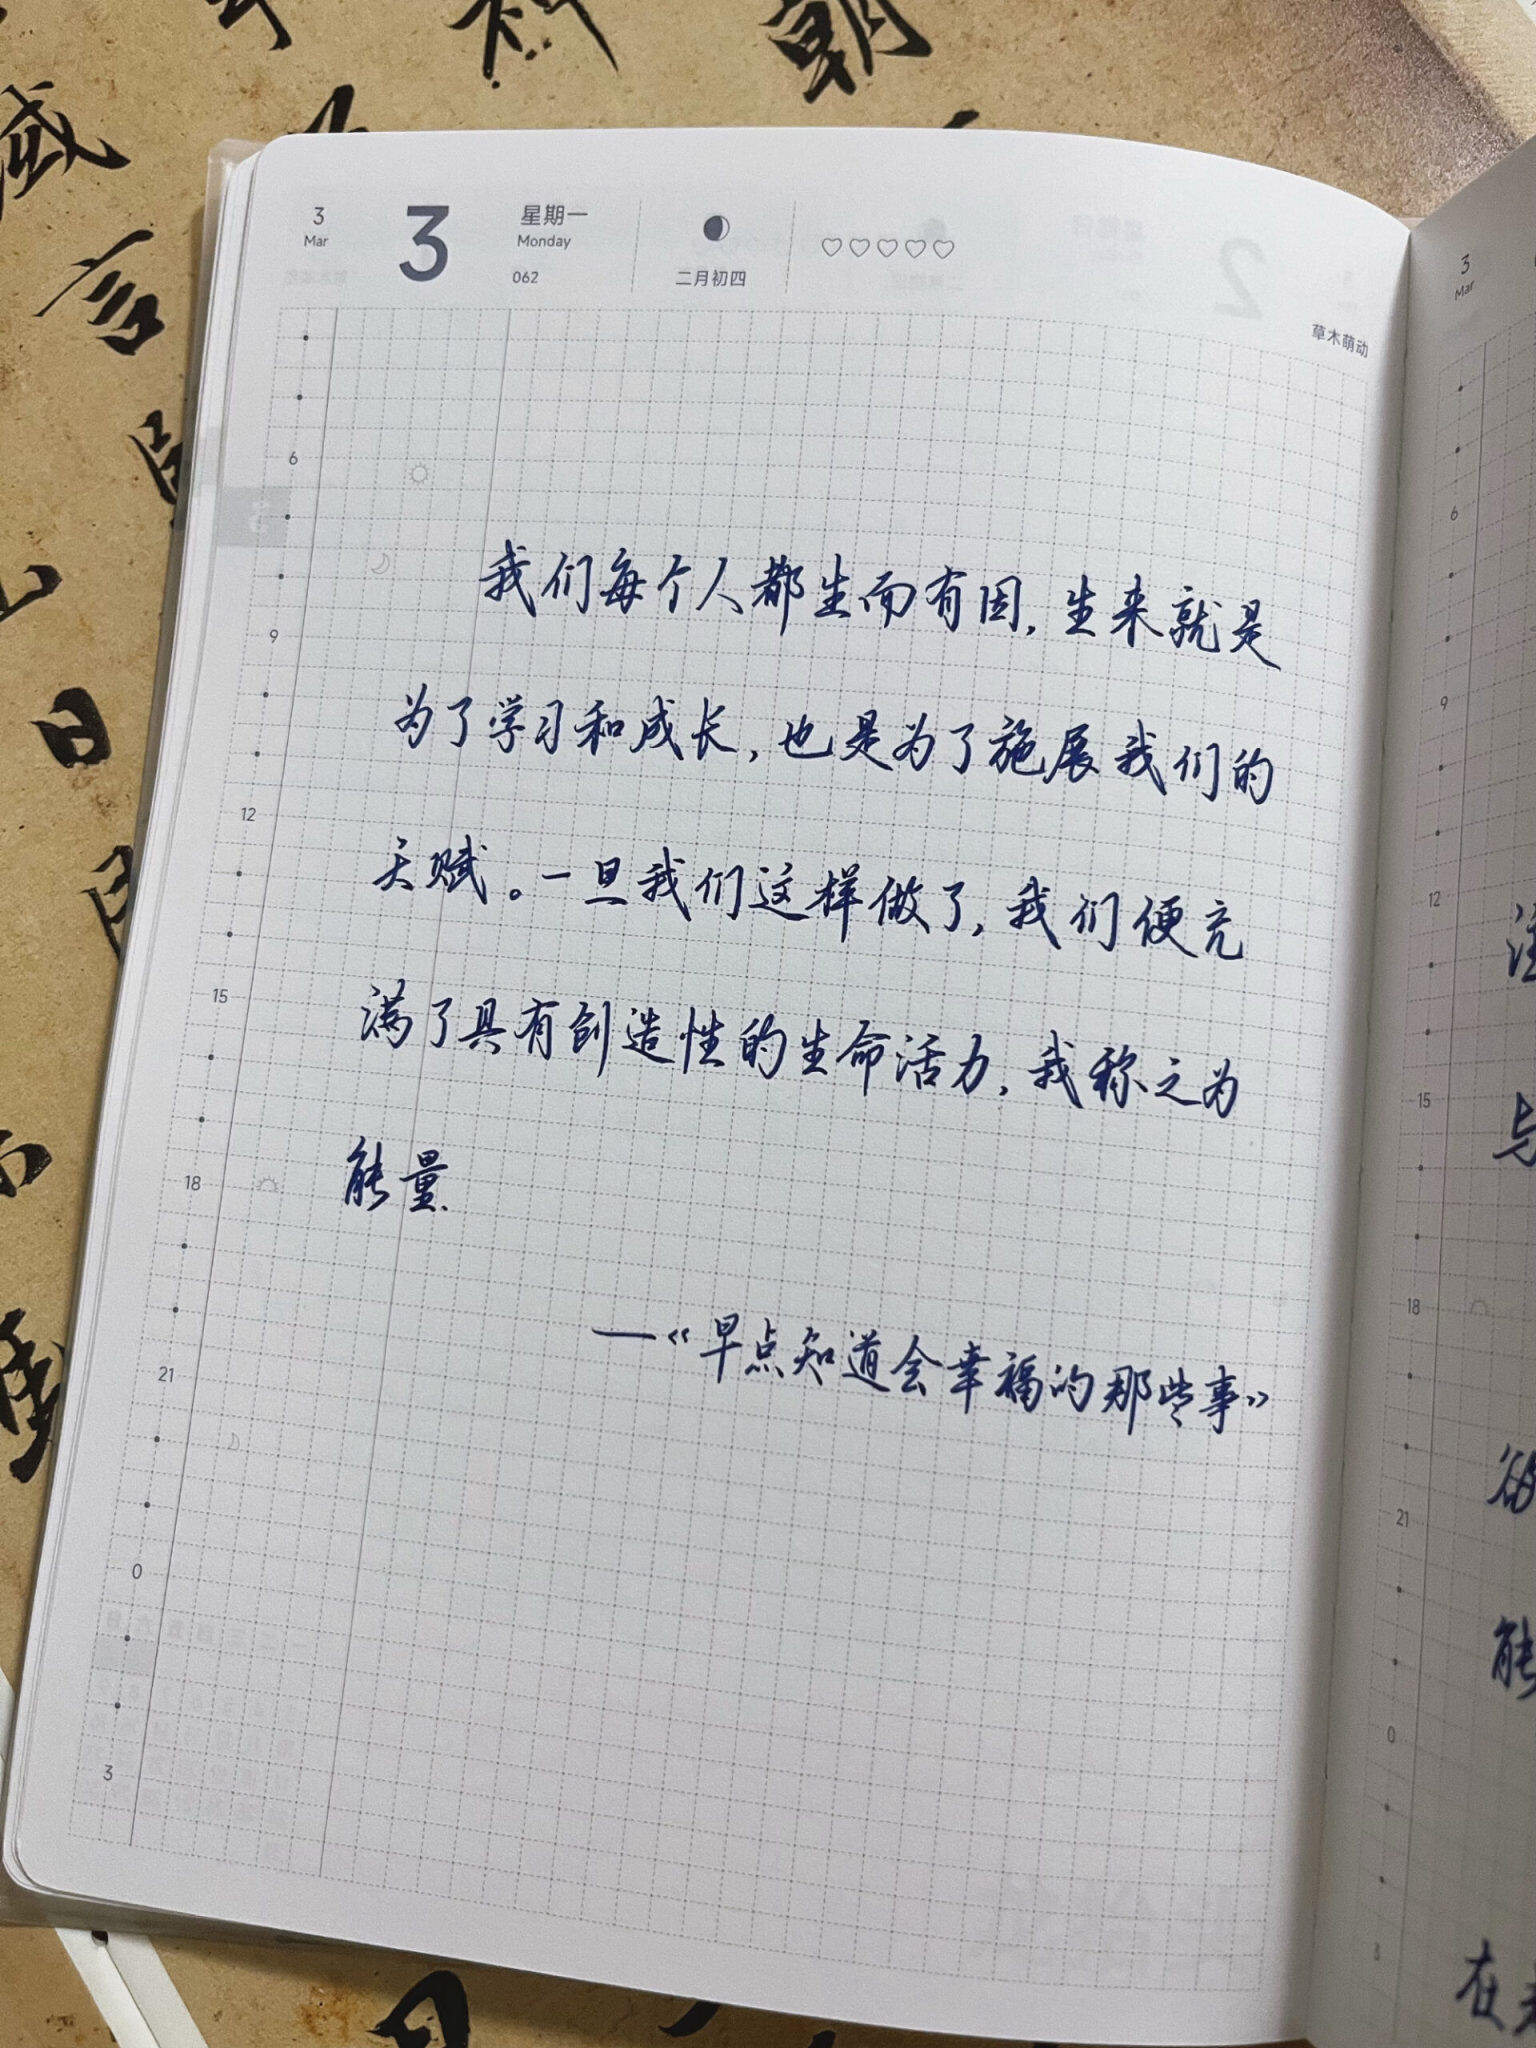 3
Mar
3
星期一
Monday
062
二月初四
草木萌动
6
9
12
15
18
21
0
3
我们每个人都生而有因,生来就是
为了学习和成长,也是为了施展我们的
天赋。一旦我们这样做了,我们便充
满了具有创造性的生命活力,我称之为
能量.
—《早点知道会幸福的那些事》
3
Mar
6
9
12
15
18
21
0
3
与
能
在
朝
言
日